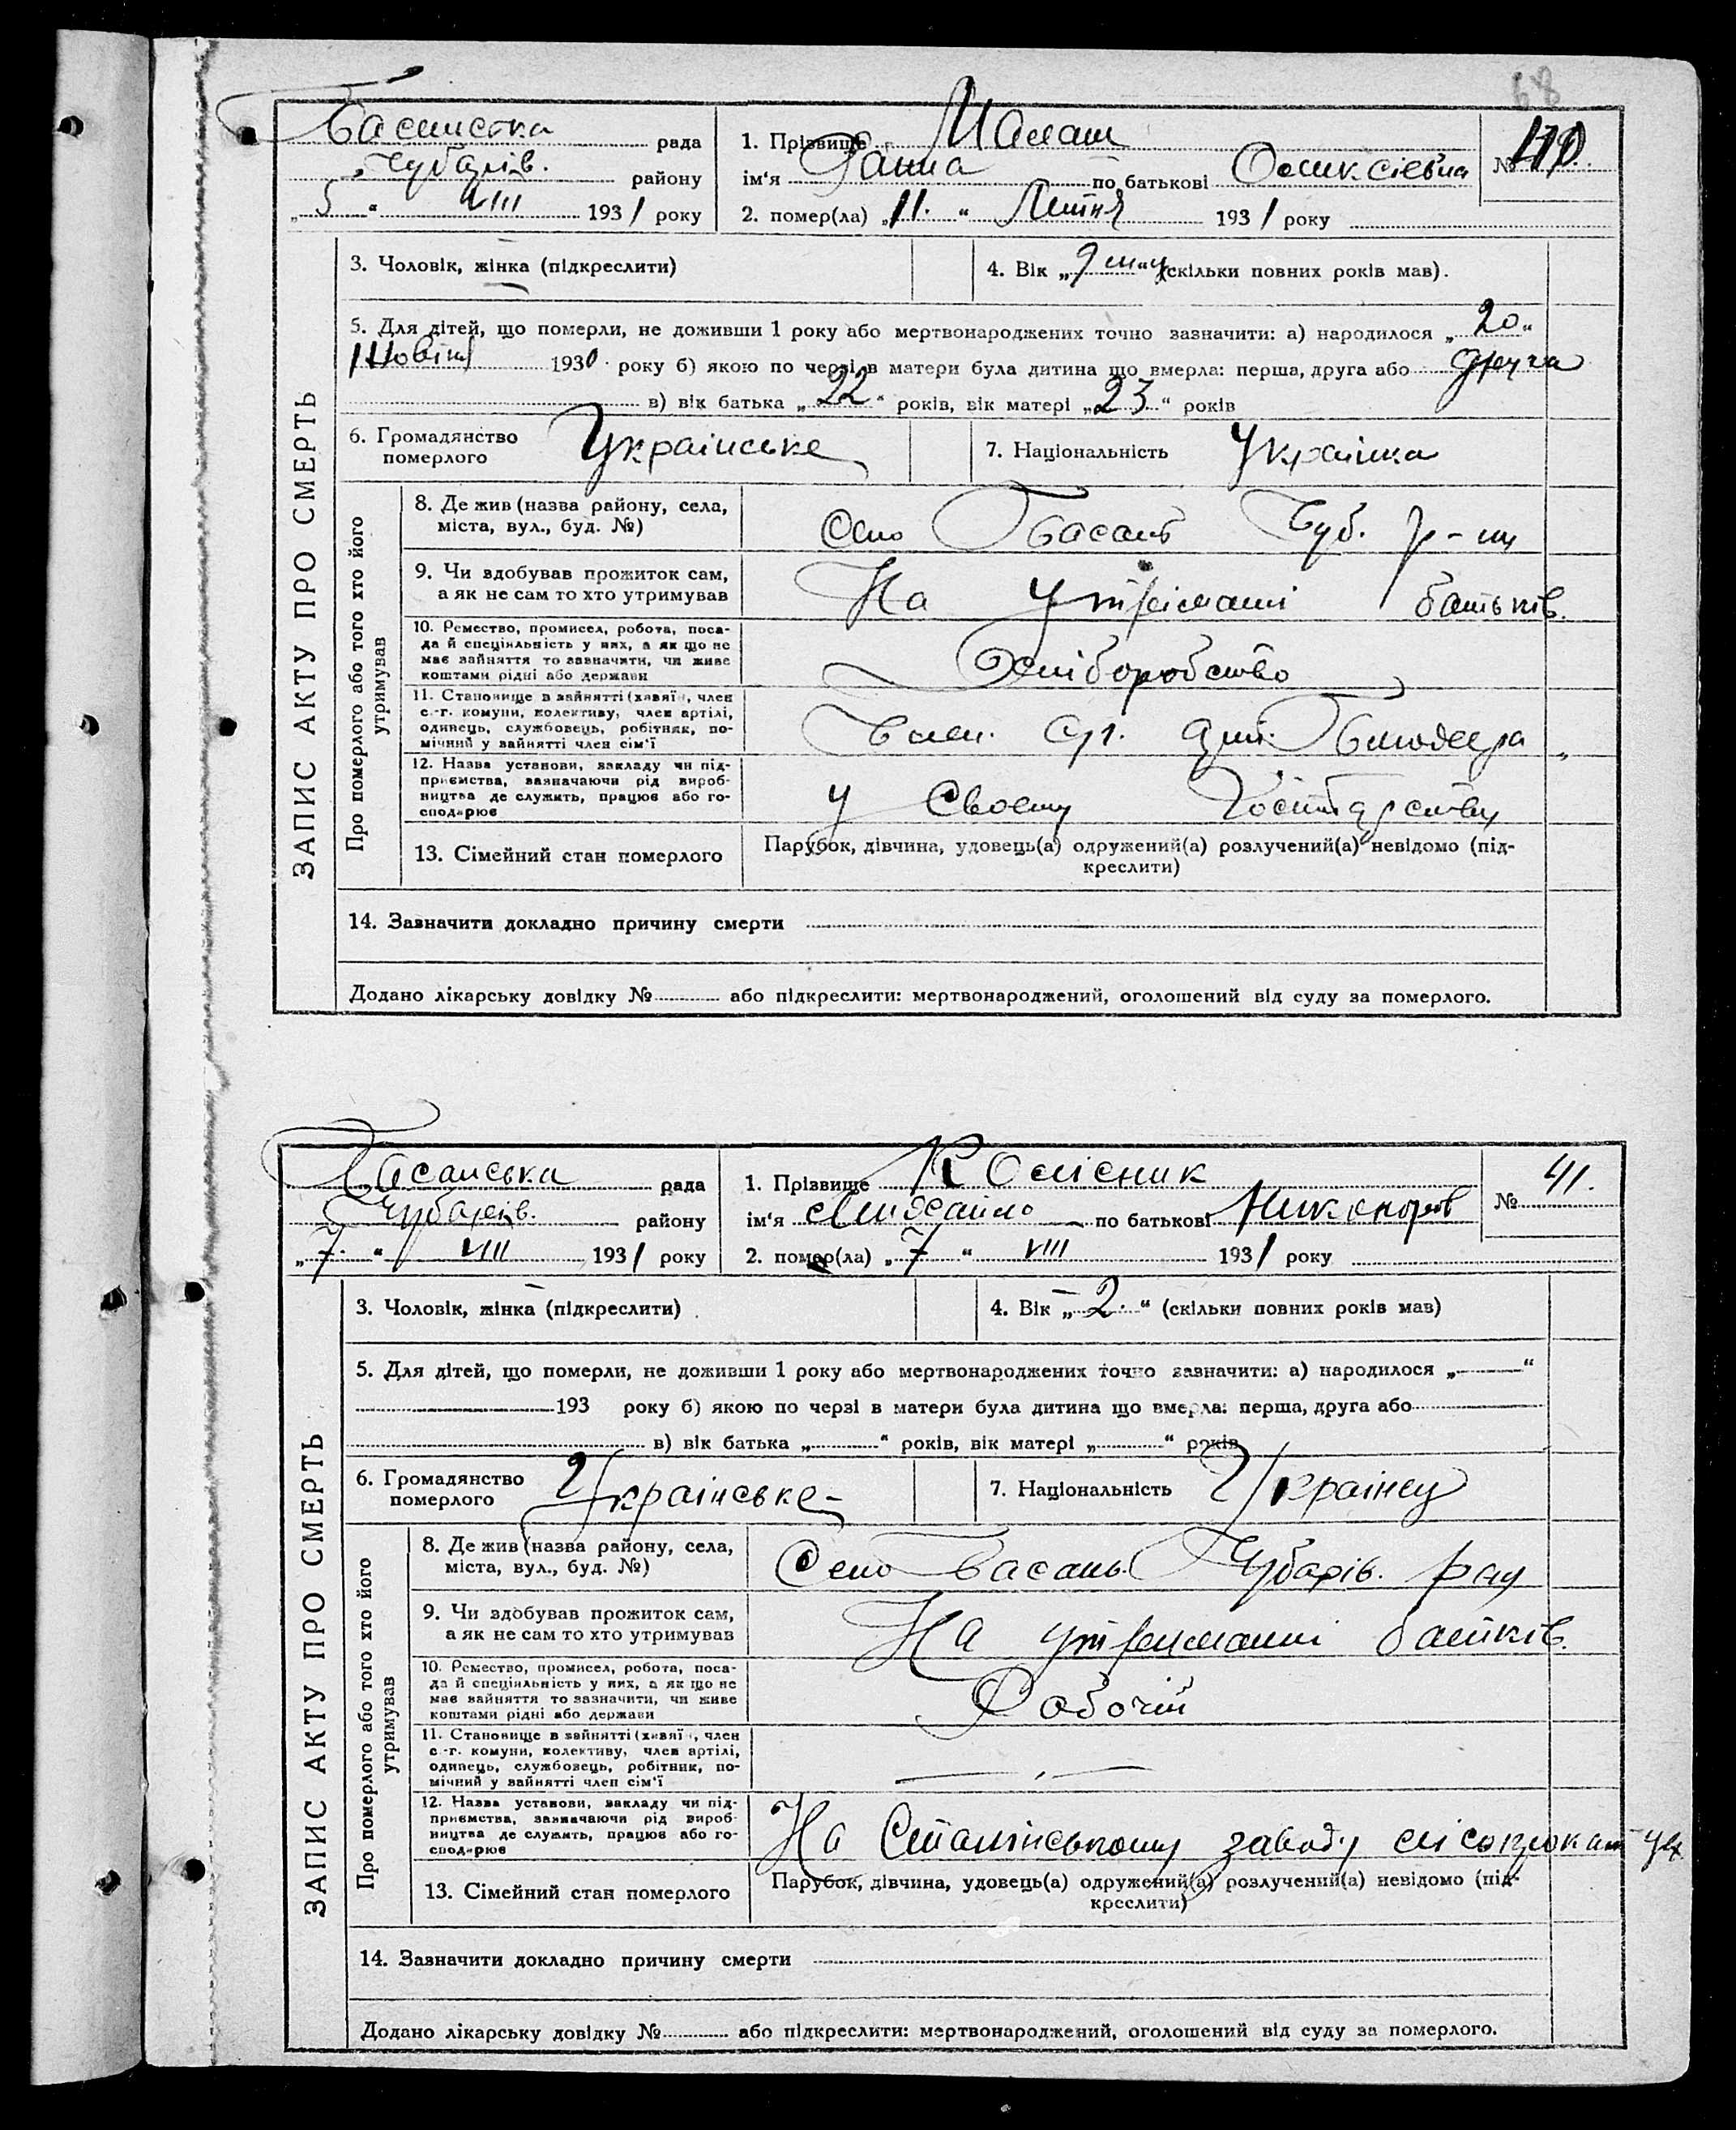 68
Басанська рада
Чубарів. району
„5“ VIII 1931 року
1. Прізвище Малаш
ім'я Ганна по батькові Олексієвна
№ 40.
2. помер(ла) „11.“ Липня 1931 року
ЗАПИС АКТУ ПРО СМЕРТЬ
3. Чоловік, жінка (підкреслити)
4. Вік „9 м-ц“ (скільки повних років мав).
5. Для дітей, що померли, не доживши 1 року або мертвонароджених точно зазначити: а) народилося „20“
Жовтня 1930 року б) якою по черзі в матери була дитина що вмерла: перша, друга або друга
в) вік батька „22“ років, вік матері „23“ років
6. Громадянство померлого Українське
7. Національність Українка
Про померлого або того хто його утримував
8. Де жив (назва району, села, міста, вул., буд. №)
Село Басань Чуб. р-ну
9. Чи здобував прожиток сам, а як не сам то хто утримував
На утриманні батьків.
10. Ремество, промисел, робота, посада й спеціяльність у них, а як що не має зайняття то зазначити, чи живе коштами рідні або держави
Хліборобство
11. Становище в зайнятті (хазяїн, член с.-г. комуни, колективу, член артілі, одинець, службовець, робітник, помічний у зайнятті член сім'ї
Член С/г. арт.
12. Назва установи, закладу чи підприємства, зазначаючи рід виробництва де служить, працює або господарює
У Своему Господарству
13. Сімейний стан померлого
Парубок, дівчина, удовець(а) одружений(а) розлучений(а) невідомо (підкреслити)
14. Зазначити докладно причину смерти
Додано лікарську довідку № або підкреслити: мертвонароджений, оголошений від суду за померлого.
Басанська рада
Чубарів. району
„7.“ VIII 1931 року
1. Прізвище Колісник
ім'я Михайло по батькові Никаноров
№ 41.
2. помер(ла) „7“ VIII 1931 року
ЗАПИС АКТУ ПРО СМЕРТЬ
3. Чоловік, жінка (підкреслити)
4. Вік „2.“ (скільки повних років мав)
5. Для дітей, що померли, не доживши 1 року або мертвонароджених точно зазначити: а) народилося „ “
193 року б) якою по черзі в матери була дитина що вмерла: перша, друга або
в) вік батька „ “ років, вік матері „ “ років
6. Громадянство померлого Українське
7. Національність Українец
Про померлого або того хто його утримував
8. Де жив (назва району, села, міста, вул., буд. №)
Село Басань Чубарів. рай
9. Чи здобував прожиток сам, а як не сам то хто утримував
На утриманні батьків.
10. Ремество, промисел, робота, посада й спеціяльність у них, а як що не має зайняття то зазначити, чи живе коштами рідні або держави
Робочій
11. Становище в зайнятті (хазяїн, член с.-г. комуни, колективу, член артілі, одинець, службовець, робітник, помічний у зайнятті член сім'ї
12. Назва установи, закладу чи підприємства, зазначаючи рід виробництва де служить, працює або господарює
На Сталінському заводу
13. Сімейний стан померлого
Парубок, дівчина, удовець(а) одружений(а) розлучений(а) невідомо (підкреслити)
14. Зазначити докладно причину смерти
Додано лікарську довідку № або підкреслити: мертвонароджений, оголошений від суду за померлого.